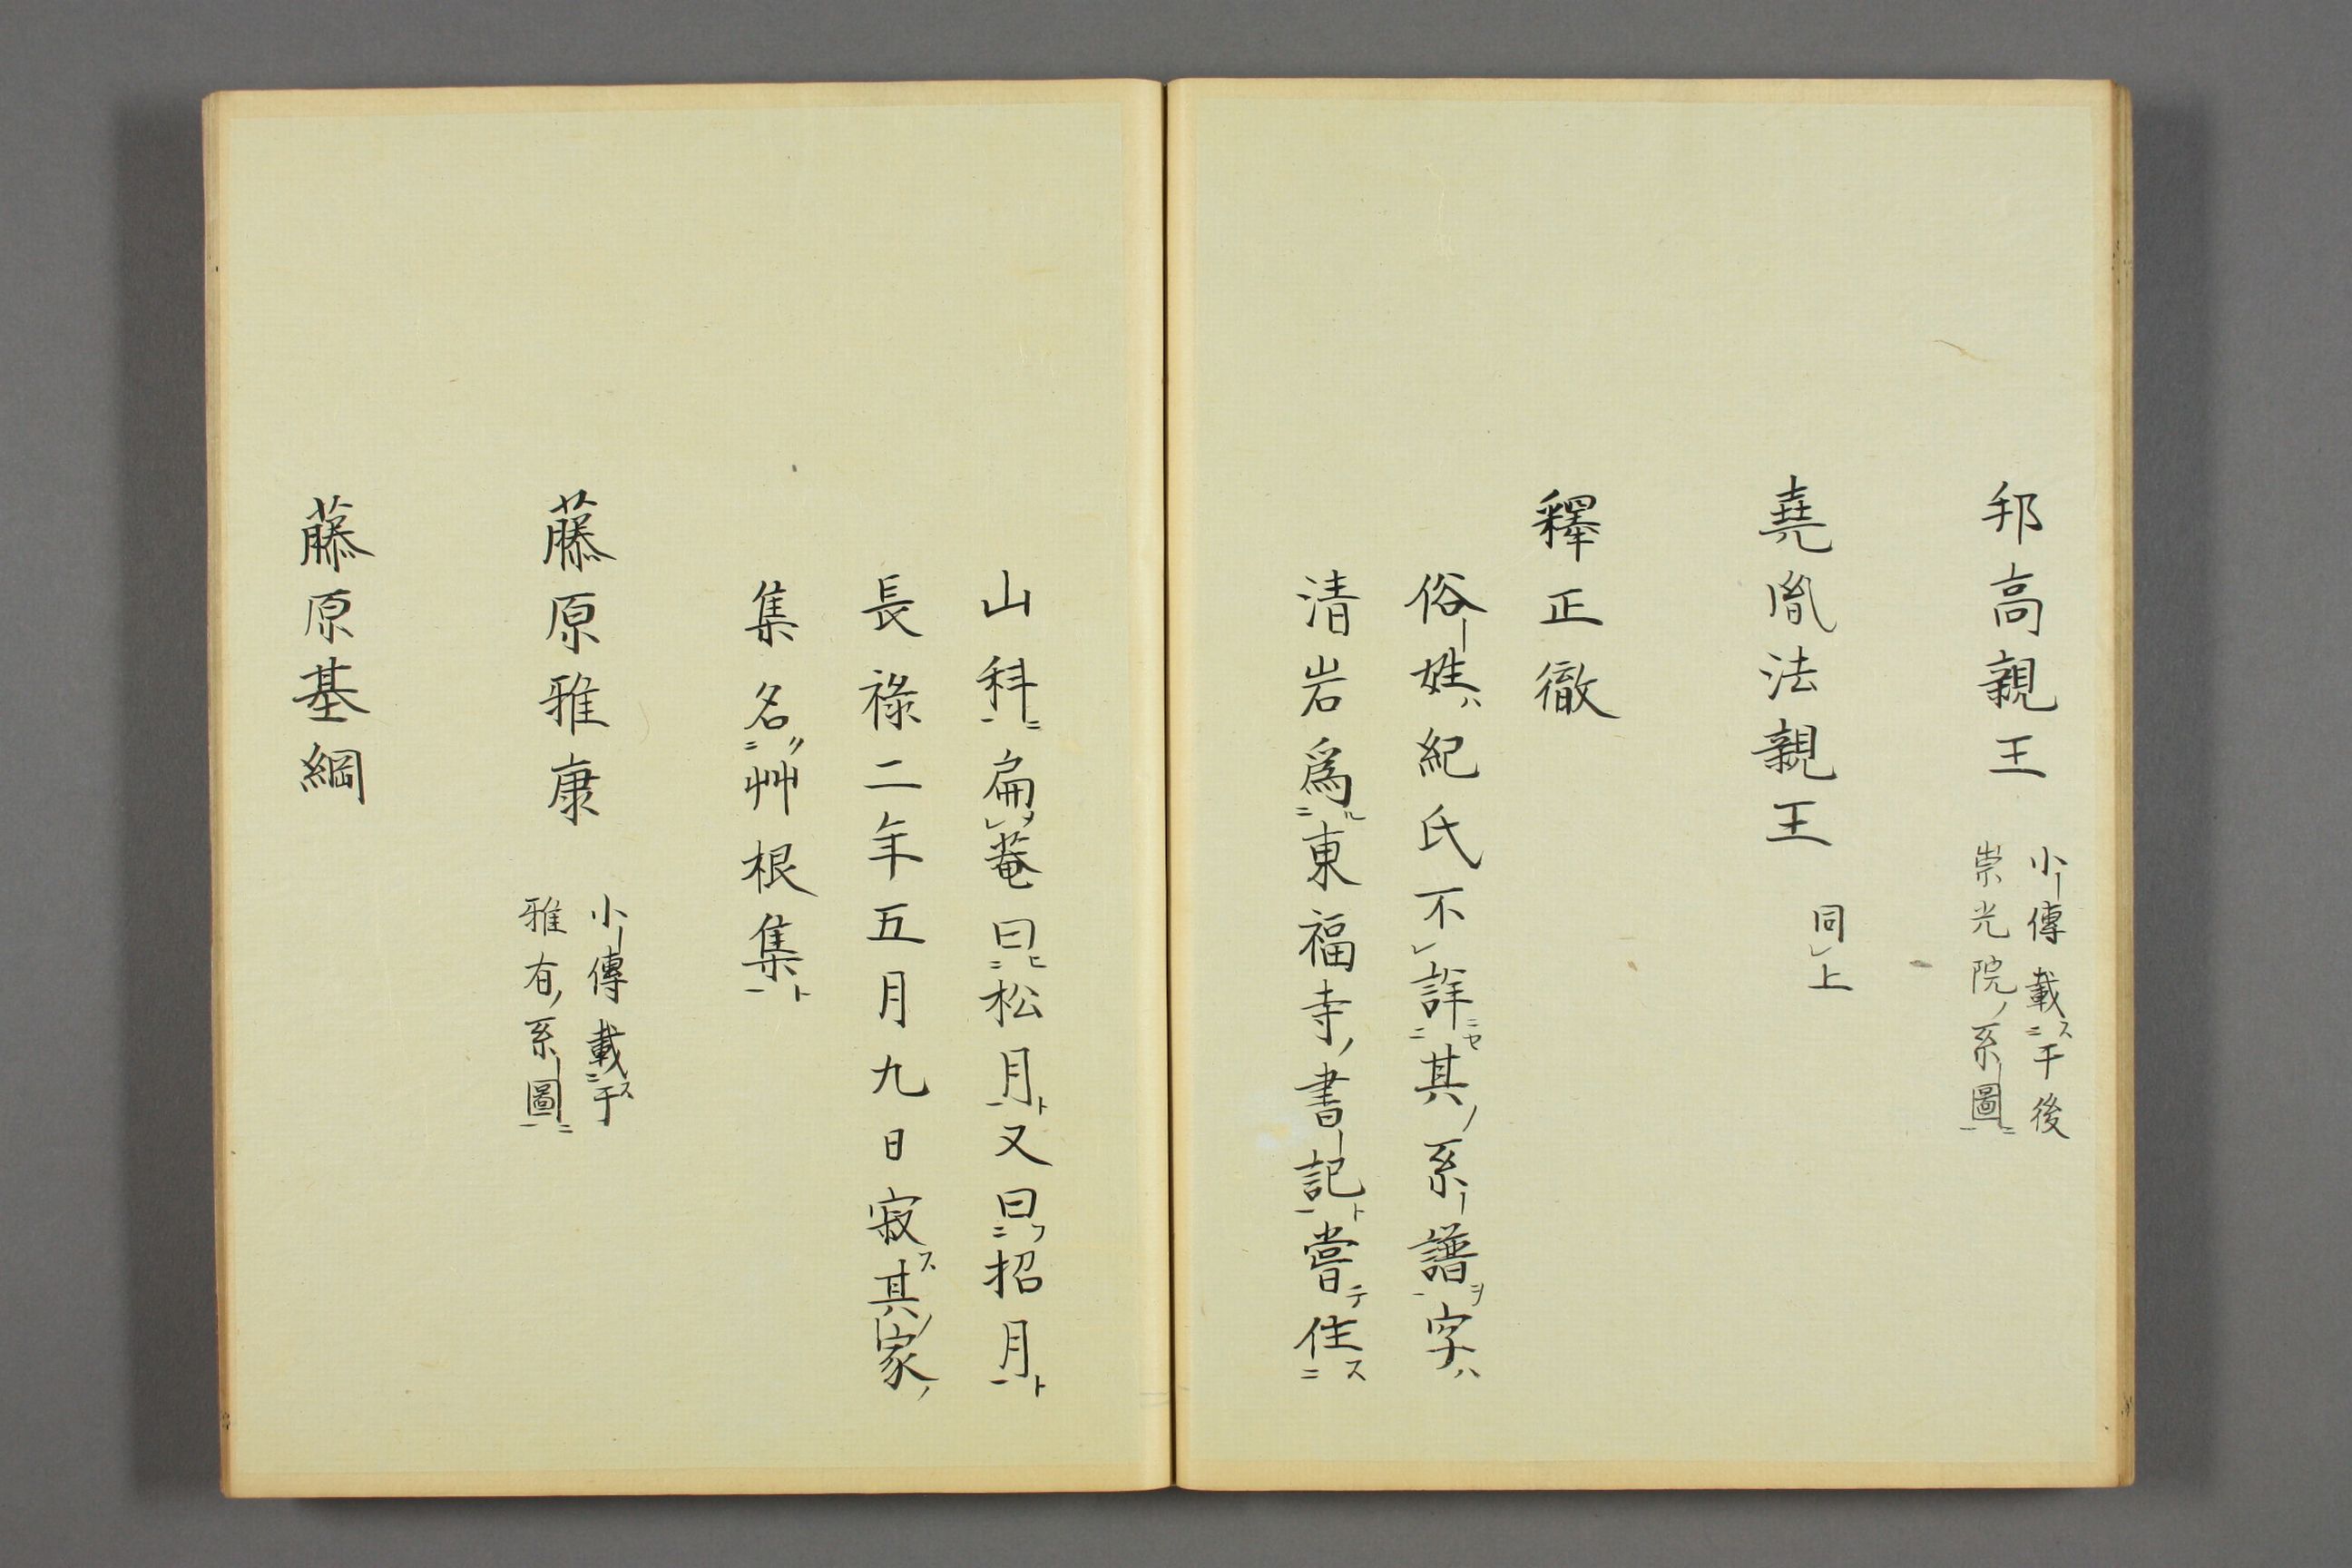 邦高親王
小傳載ス二于後
崇光院ノ系圖一ニ
堯胤法親王
同レ上
釋正徹
俗姓ハ紀氏不レ詳ニセ二其ノ系譜ヲ一字ハ
清岩爲ル二東福寺ノ書記ト一嘗テ住ス二
山科ニ一扁メレ菴曰ヒ二松月ト一又曰フ二招月ト一
長祿二年五月九日寂ス其ノ家ノ
集名ク二艸根集ト一
藤原雅康
小傳載ス二于
雅有ノ系圖一ニ
藤原基綱